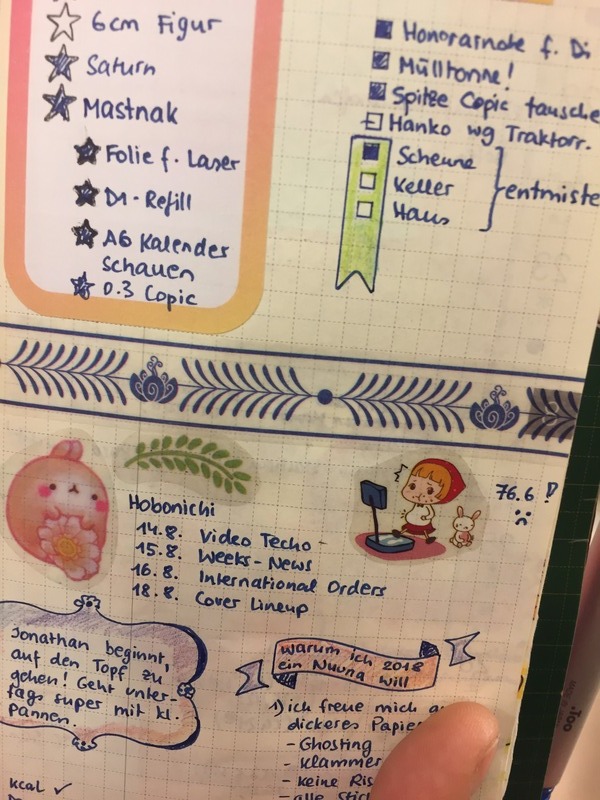 6cm Figur
Saturn
Mastnak
Folie f. Laser
D1-Refill
A6 Kalender
schauen
0.3 Copic
Honorarnote f. Di
Mülltonne!
Spitze Copic tausche
Hanko wg Traktorr.
Scheune
Keller
Haus
entmiste
Hobonichi
14.8. Video Techo
15.8. Weeks-News
16.8. International Orders
18.8. Cover Lineup
76.6 !
Jonathan beginnt,
auf den Topf zu
gehen! Geht unter-
tags super mit kl.
Pannen.
warum ich 2018
ein Nuuna will
1) ich freue mich a
dickeres Papie
- Ghosting
- Klammer
- keine Ris
- alle Stic
kcal ✓
.Too